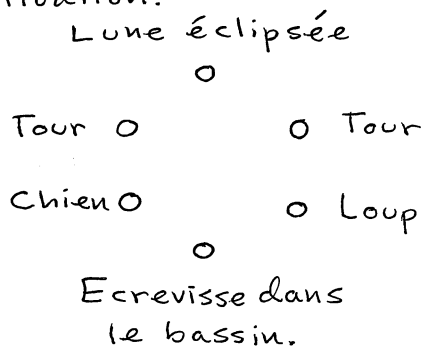 Lune éclipsée
Tour Tour
Chien Loup
Ecrevisse dans
le bassin.